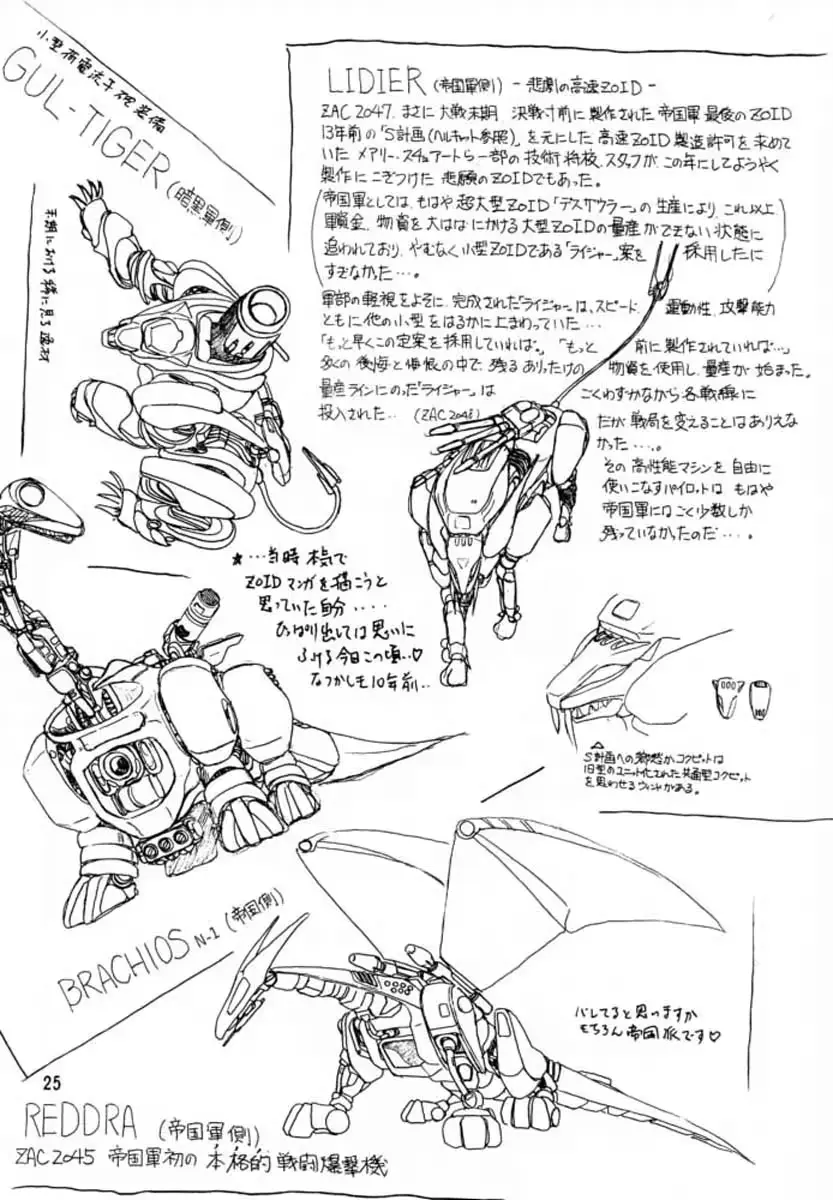 小型荷電流子砲装備
GUL-TIGER (暗黒軍側)
末期における 稀に見る 逸材
LIDIER (帝国軍側) - 悲劇の高速ZOID -
ZAC 2047. まさに 大戦末期 決戦寸前に 製作された 帝国軍 最後の ZOID
13年前の「S計画(ヘルキャット参照)」を元にした 高速ZOID 製造許可を求めて
いた メアリー・スチュアートら一部の 技術将校、スタッフが この年にしてようやく
製作に こぎつけた 悲願のZOIDでもあった。
帝国軍としては、もはや 超大型ZOID「デスザウラー」の 生産により、これ以上
軍資金、物資を 大はばにかける 大型ZOIDの量産が できない 状態に
追われており、やむなく小型ZOIDである「ライジャー」案を 採用したに
すぎなかった…。
軍部の軽視をよそに、完成された「ライジャー」は、スピード、運動性、攻撃能力
ともに 他の小型をはるかに 上まわっていた…
「もっと早くこの定案を採用していれば」。「もっと 前に製作されていれば…」
多くの 後悔と悔恨の中で 残るありったけの 物資を使用し、量産が 始まった。
量産ラインにのった「ライジャー」は ごくわずかながら各戦線に
投入された… (ZAC 2048) だが 戦局を変えることは ありえな
かった…。
その 高性能マシンを 自由に
使いこなすパイロットは もはや
帝国軍には ごく少数しか
残っていなかったのだ….
★…当時 本気で
ZOIDマンガを描こうと
思っていた自分….
ひっぱり出しては思いに
ふける今日この頃…♡
なつかしも10年前..
△
S計画への郷愁か コクピットは
旧型のユニット化された共通型コクピット
を思わせるラインがある。
BRACHIOS N-1 (帝国側)
バレてると思いますが
もちろん帝国派です♡
25
REDDRA (帝国軍側)
ZAC 2045 帝国軍初の 本格的 戦闘爆撃機